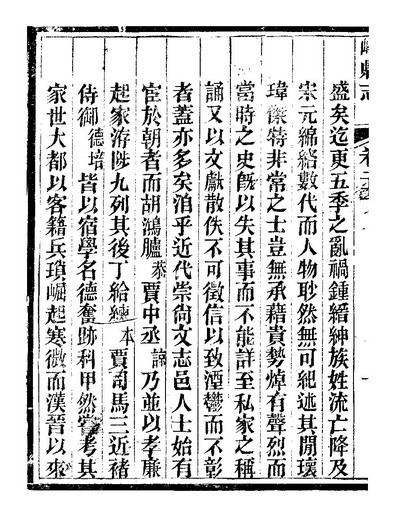 盛矣迄更五季之亂禍鍾縉紳族姓流亡降及
宋元綿絡數代而人物眇然無可紀述其閒瓌
瑋傑特非常之士豈無承藉貴勢焯有聲烈而
當時之史旣以失其事而不能詳至私家之稱
誦又以文獻散佚不可徵信以致湮鬱而不彰
者蓋亦多矣洎乎近代崇尚文志邑人士始有
宦於朝者而胡鴻臚 賈中丞諒乃並以孝廉
起家洊陞九列其後丁給 本 賈司馬三近褚
侍御德培皆以宿學名德奮跡科甲然嘗考其
家世大都以客籍兵琅崛起寒微而漢晉以來